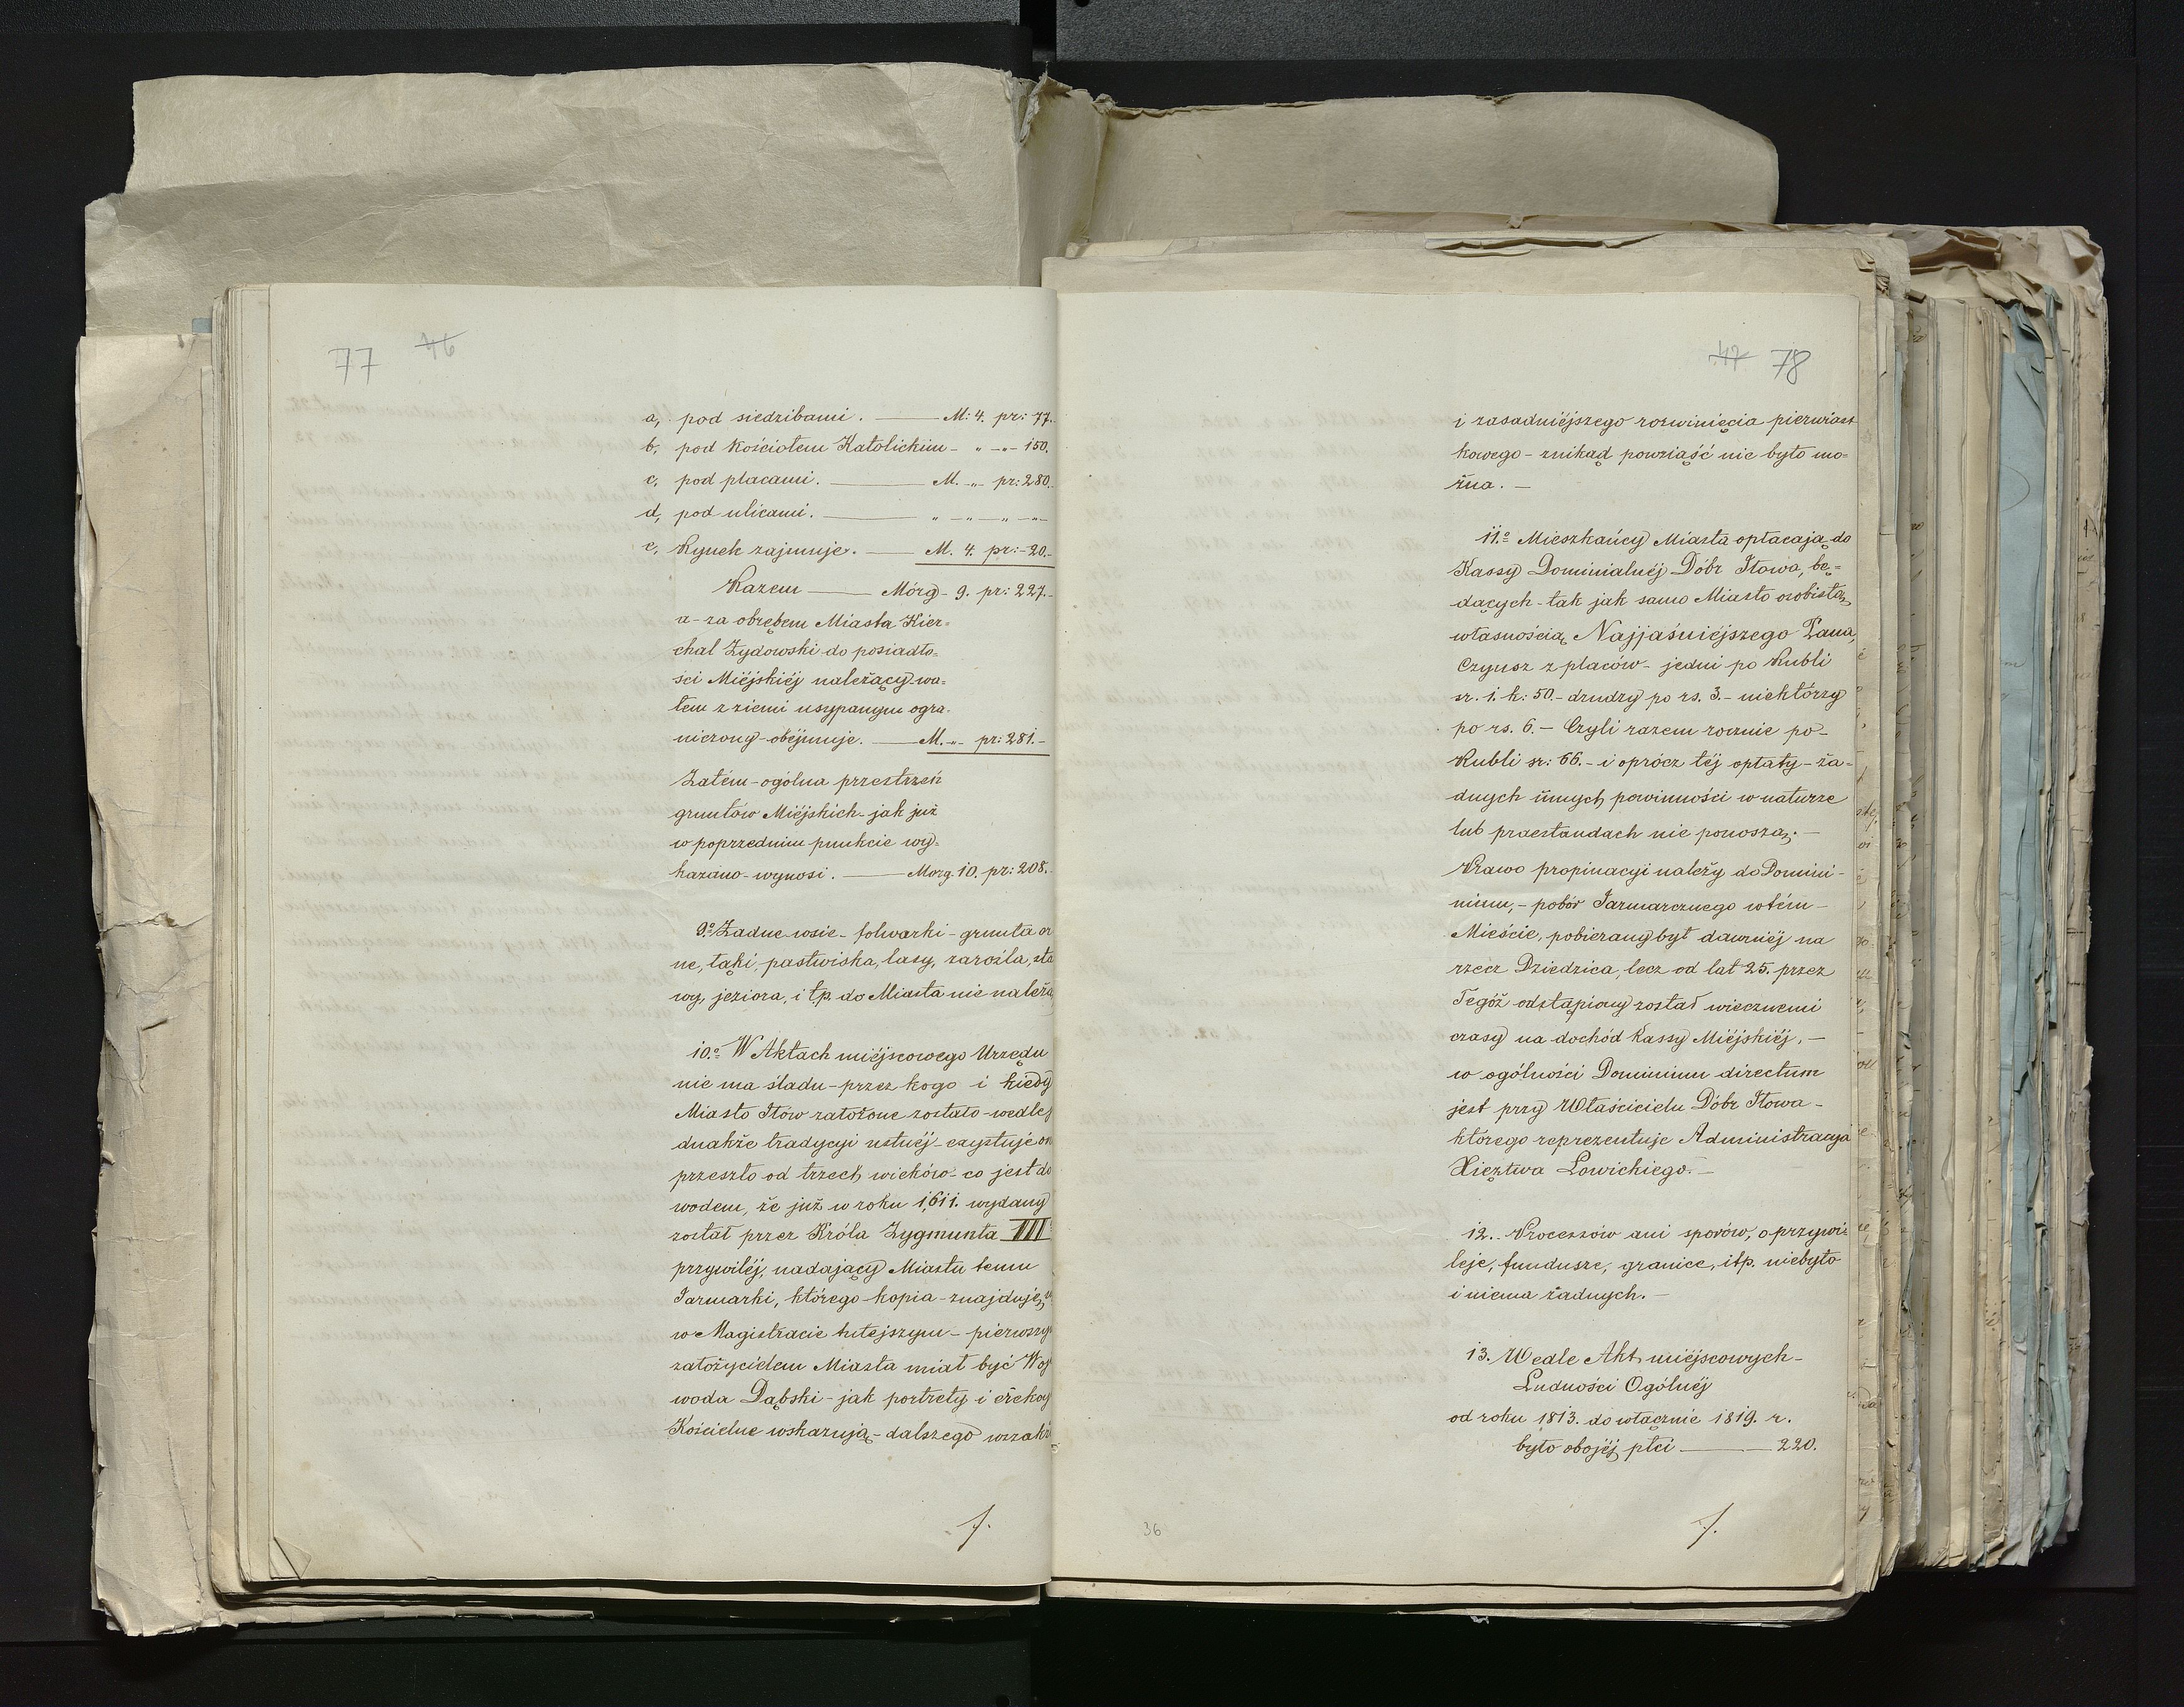 77 46
a, pod siedzibami. — M: 4. pr: 77.
b, pod Kościołem Katolickim - " -"- 150.
c, pod placami. — M. -"- pr: 280.
d, pod ulicami. — " -"- " -"-
e, Rynek zajmuje. — M. 4. pr: - 20.-
Razem — Mórg - 9. pr: 227.-
a - za obrębem Miasta Kier=
chal Żydowski do posiadło=
ści Miéjskiéj należący - wa=
łem z ziemi usypanym ogra-
niczony - obéjmuje. — M. -"- pr: 281.-
Zatém - ogólna przestrzeń
gruntów Miéjskich - jak już
w poprzednim punkcie wy=
kazano - wynosi. — Morg. 10. pr: 208.-
9.o Żadne wsie - folwarki - grunta or
ne, łąki, pastwiska, lasy, zarośla, sta
wy, jeziora, i t.p. do Miasta nie należą
10.o W Aktach miéjscowego Urzędu
nie ma śladu - przez kogo i kiedy
Miasto Iłów założone zostało - wedle j
dnakże tradycyi ustnéj - exystuje on
przeszło od trzech wieków - co jest do
wodem, że już w roku 1611. wydany
został przez Króla Zygmunta III
przywiléj, nadający Miastu temu
Jarmarki, którego - kopia - znajduje
w Magistracie tutejszym - pierwszy
założycielem Miasta miał być Woj
woda Dąbski - jak portrety i
Kościelne wskazują - dalszego wszak
/.
47 78
i zasadniéjszego rozwinięcia pierwiast
kowego - znikąd powziąść nie było mo=
żna. -
11.o Mieszkańcy Miasta opłacają do
Kassy Dominialnéj Dóbr Iłowa, bę=
dących - tak jak samo Miasto osobistą
własnością Najjaśniéjszego Pana,
Czynsz z placów - jedni po Rubli
sr. 1. k: 50. - drudzy po rs. 3. - niektórzy
po rs. 6. - Czyli razem rocznie po -
Rubli sr: 66. - i oprócz téj opłaty - ża=
dnych innych powinności w naturze
lub praestandach nie ponoszą. -
Prawo propinacyi należy do Domini-
nium, - pobór Jarmarcznego w tém -
Mieście, pobierany był dawniéj na
rzecz Dziedzica, lecz od lat 25. przez
Tegóż odstąpiony został wiecznemi
czasy na dochód Kassy Miéjskiéj. -
w ogólności Dominium directum
jest przy Właścicielu Dóbr Iłowa -
którego reprezentuje Administracya
Xięztwa Łowickiego. -
12. Processów ani sporów, o przywi=
leje, fundusze, granice, itp. niebyło
i niema żadnych. -
13. Wedle Akt miéjscowych -
Ludności Ogólnéj
od roku 1813. do włącznie 1819. r.
było obojéj płci — 220.
/.
36